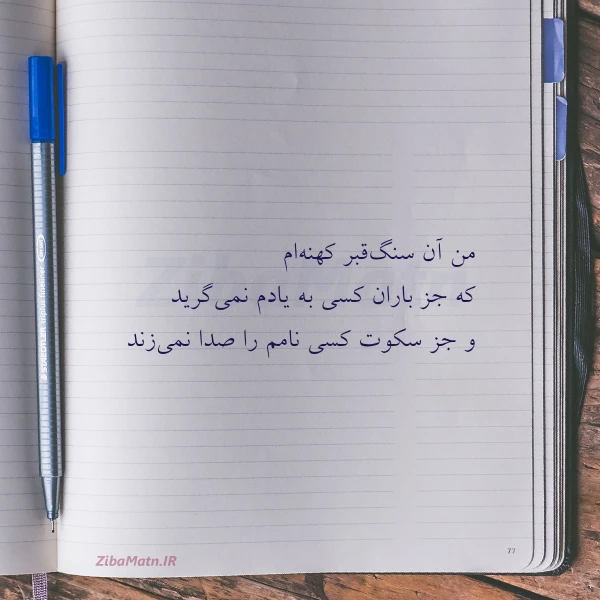 من آن سنگ‌قبر کهنه‌ام
که جز باران کسی به یادم نمی‌گرید
و جز سکوت کسی نامم را صدا نمی‌زند
77
ZibaMatn.IR